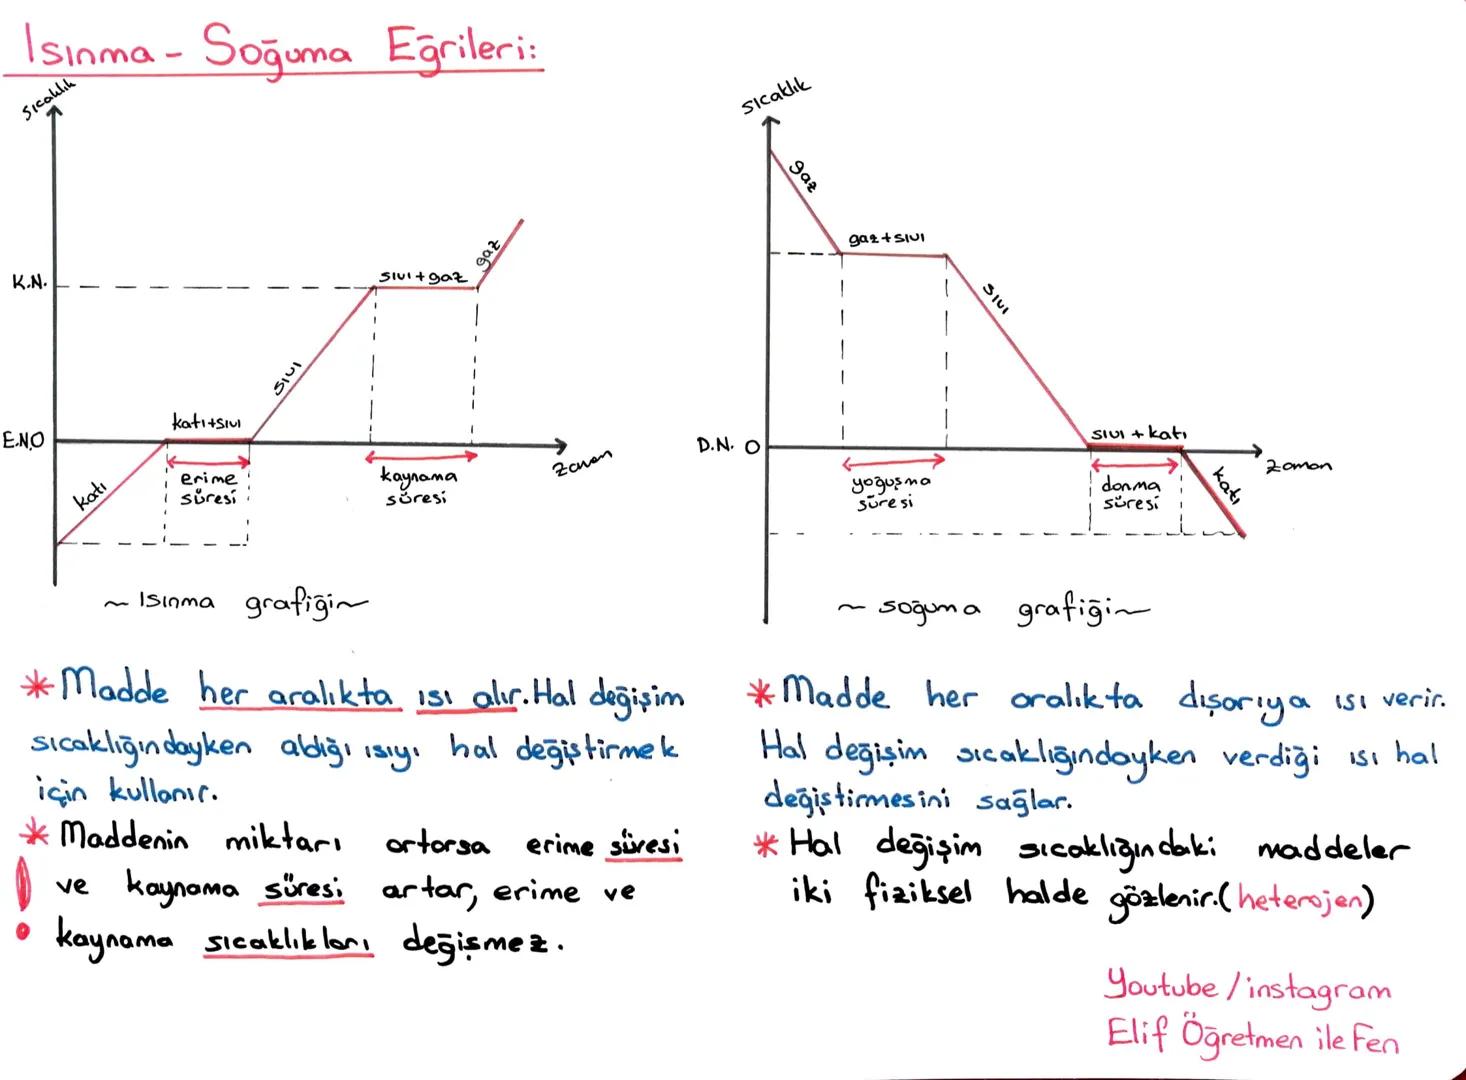 Isınma - Soğuma Eğrileri:
Sıcaklık
K.N.
E.N.O
katı
katı+sıvı
sıvı
sıvı+gaz
gaz
erime
süresi
kaynama
süresi
Zaman
~ Isınma grafiği ~
sıcaklık
gaz
gaz+sıvı
sıvı
D.N. O
sıvı + katı
katı
yoğuşma
süresi
donma
süresi
zaman
~ soğuma grafiği ~
* Madde her aralıkta ısı alır. Hal değişim
sıcaklığındayken aldığı ısıyı hal değiştirmek
için kullanır.
* Maddenin miktarı artarsa erime süresi
ve kaynama süresi artar, erime ve
kaynama sıcaklıkları değişmez.
* Madde her aralıkta dışarıya ısı verir.
Hal değişim sıcaklığındayken verdiği ısı hal
değiştirmesini sağlar.
* Hal değişim sıcaklığındaki maddeler
iki fiziksel halde gözlenir. (heterojen)
Youtube / instagram
Elif Öğretmen ile Fen